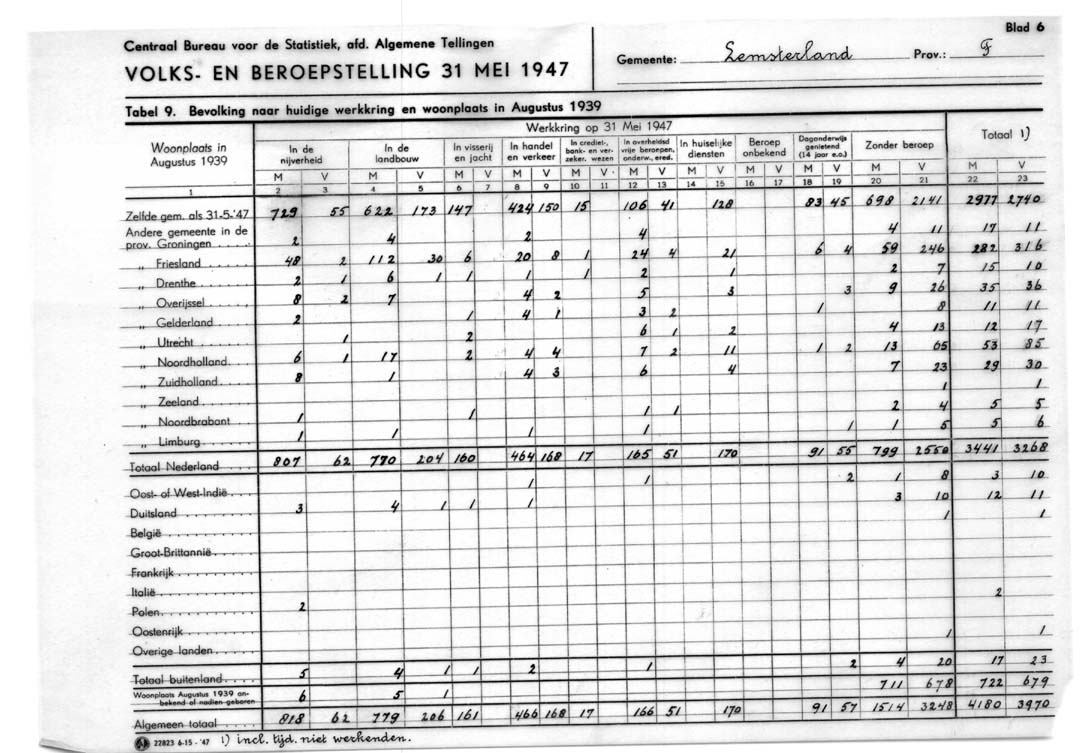 Blad 6
Centraal Bureau voor de Statistiek, afd. Algemene Tellingen
VOLKS- EN BEROEPSTELLING 31 MEI 1947
Gemeente: Lemsterland Prov.: F
Tabel 9. Bevolking naar huidige werkkring en woonplaats in Augustus 1939
Woonplaats in Augustus 1939
Werkkring op 31 Mei 1947
Totaal 1)
In de nijverheid
In de landbouw
In visserij en jacht
In handel en verkeer
In crediet-, bank- en verzeker. wezen
In overheidsd vrije beroepen, onderw., ered.
In huiselijke diensten
Beroep onbekend
Dagonderwijs genietend (14 jaar e.o.)
Zonder beroep
M V M V M V M V M V M V M V M V M V M V M V
1 2 3 4 5 6 7 8 9 10 11 12 13 14 15 16 17 18 19 20 21 22 23
Zelfde gem. als 31-5-'47 729 55 622 173 147 424 150 15 106 41 128 83 45 698 2141 2977 2740
Andere gemeente in de
prov. Groningen 2 4 2 4 4 11 17 11
„ Friesland 48 2 112 30 6 20 8 1 24 4 21 6 4 59 246 282 316
„ Drenthe 2 1 6 1 1 1 1 2 1 2 7 15 10
„ Overijssel 8 2 7 4 2 5 3 3 9 26 35 36
„ Gelderland 2 1 4 1 3 2 1 8 11 11
„ Utrecht 1 2 6 1 2 4 13 12 17
„ Noordholland 6 1 17 2 4 4 7 2 11 1 2 13 65 53 85
„ Zuidholland 8 1 4 3 6 4 7 23 29 30
„ Zeeland 1 1
„ Noordbrabant 1 1 1 1 2 4 5 5
„ Limburg 1 1 1 1 1 1 5 5 6
Totaal Nederland 807 62 770 204 160 464 168 17 165 51 170 91 55 799 2550 3441 3268
Oost- of West-Indië 1 1 2 1 8 3 10
Duitsland 3 4 1 1 1 3 10 12 11
België 1 1
Groot-Brittannië
Frankrijk
Italië
Polen 2 2
Oostenrijk
Overige landen 1 1
Totaal buitenland 5 4 1 1 2 1 2 4 20 17 23
Woonplaats Augustus 1939 onbekend of nadien geboren 6 5 1 711 678 722 679
Algemeen totaal 818 62 779 206 161 466 168 17 166 51 170 91 57 1514 3248 4180 3970
22823 6-15 - '47 1) incl. tijd. niet werkenden.